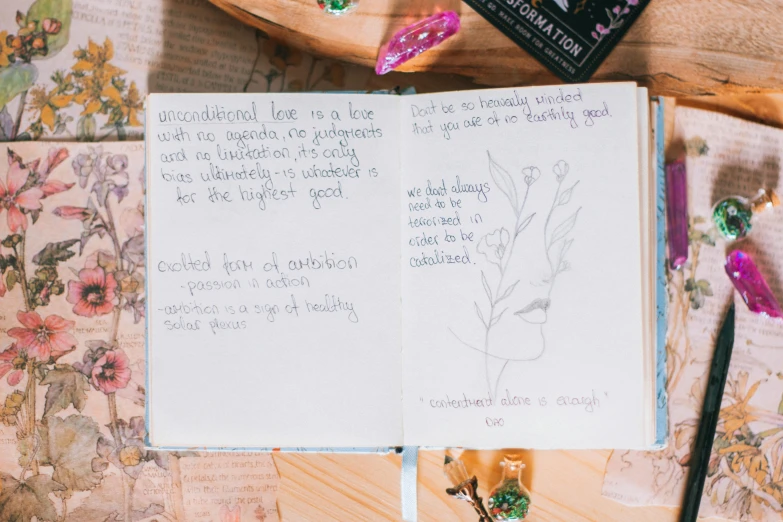 SFORMATION
GO. MAKE ROOM FOR GREATNESS
unconditional love is a love
with no agenda, no judgments
and no limitation, it's only
bias ultimately - is whatever is
for the highest good.
exolted form of ambition
- passion in action
-ambition is a sign of healthy
solar plexus
Don't be so heavenly minded
that you are of no earthly good
we don't always
need to be
terrorized in
order to be
catalized.
"contentment alone is enough"
DAO